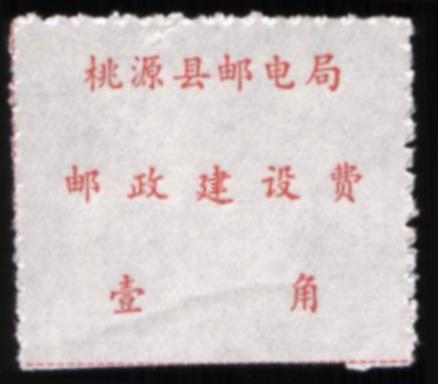 桃源县邮电局
邮政建设费
壹角